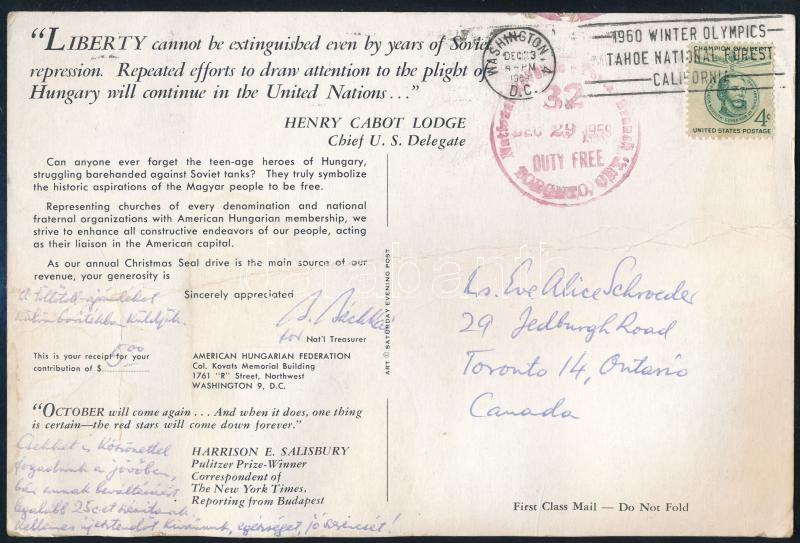 "LIBERTY cannot be extinguished even by years of Soviet
repression. Repeated efforts to draw attention to the plight of
Hungary will continue in the United Nations ..."
HENRY CABOT LODGE
Chief U. S. Delegate
Can anyone ever forget the teen-age heroes of Hungary,
struggling barehanded against Soviet tanks? They truly symbolize
the historic aspirations of the Magyar people to be free.
Representing churches of every denomination and national
fraternal organizations with American Hungarian membership, we
strive to enhance all constructive endeavors of our people, acting
as their liaison in the American capital.
As our annual Christmas Seal drive is the main source of our
revenue, your generosity is
Sincerely appreciated
külön borítékban küldjük.
for Nat'l Treasurer
This is your receipt for your
contribution of $ 5.00
AMERICAN HUNGARIAN FEDERATION
Col. Kovats Memorial Building
1761 "R" Street, Northwest
WASHINGTON 9, D.C.
"OCTOBER will come again ... And when it does, one thing
is certain—the red stars will come down forever."
HARRISON E. SALISBURY
Pulitzer Prize-Winner
Correspondent of
The New York Times,
Reporting from Budapest
Csekket is köszönettel
fogadunk a jövőben,
bár annak beváltásáért
legalább 25c-et
Kellemes újesztendőt kívánunk, egészséget, jó szerencsét!
ART © SATURDAY EVENING POST
WASHINGTON, 4
DEC 23
4-PM
1959
D.C.
1960 WINTER OLYMPICS
TAHOE NATIONAL FOREST
CALIFORNIA
CHAMPION OF LIBERTY
4¢
UNITED STATES POSTAGE
32
DEC 29 1959
DUTY FREE
TORONTO, ONT.
Ms. Eve Alice Schroeder
29 Jedburgh Road
Toronto 14, Ontario
Canada
First Class Mail — Do Not Fold
darabanth